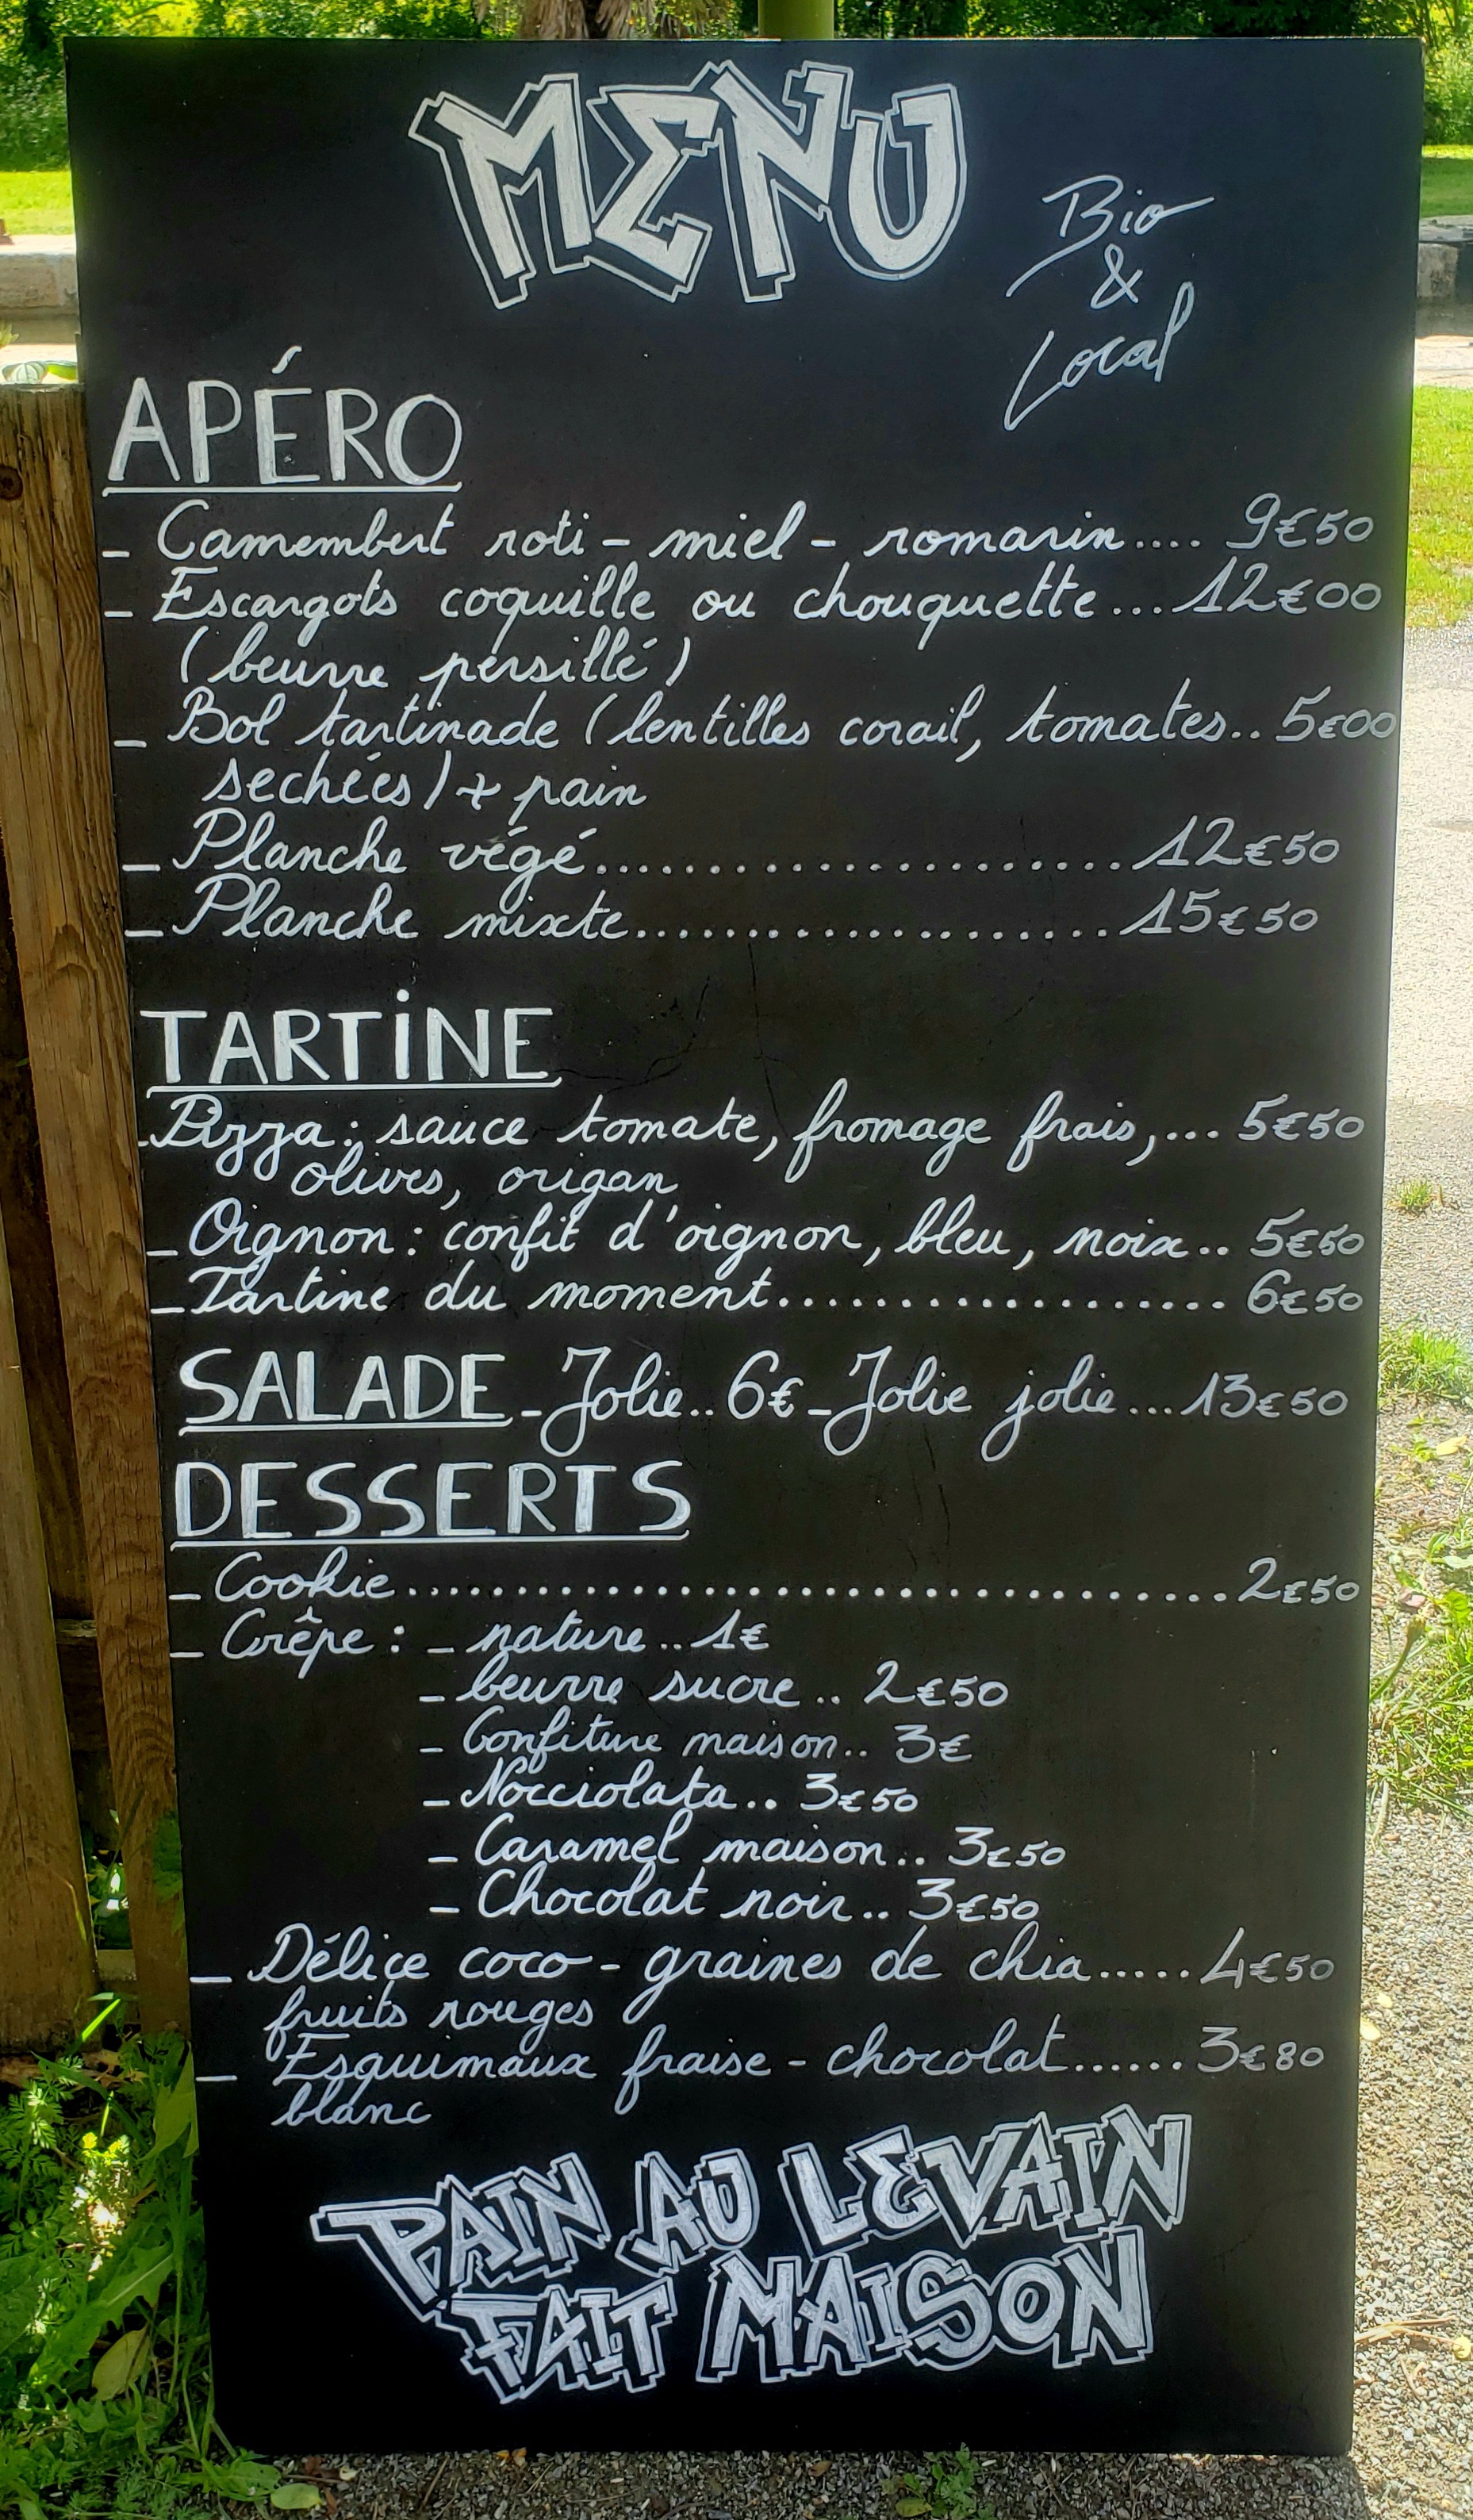 MENU
Bio
&
Local
APÉRO
_ Camembert roti - miel - romarin.... 9€50
_ Escargots coquille ou chouquette...12€00
(beurre persillé)
_ Bol tartinade (lentilles corail, tomates..5€00
sechées) + pain
_ Planche végé..............................12€50
_ Planche mixte..........................15€50
TARTiNE
_Pizza: sauce tomate, fromage frais,... 5€50
olives, origan
_ Oignon: confit d'oignon, bleu, noix.. 5€50
_ Tartine du moment..................... 6€50
SALADE _ Jolie..6€ _ Jolie jolie...13€50
DESSERTS
_ Cookie..........................................2€50
_ Crêpe : _ nature..1€
_ beurre sucre.. 2€50
_ Confiture maison.. 3€
_ Nocciolata.. 3€50
_ Caramel maison.. 3€50
_ Chocolat noir.. 3€50
_ Délice coco - graines de chia.....4€50
fruits rouges
_ Esquimaux fraise - chocolat......3€80
blanc
PAIN AU LEVAIN
FAIT MAISON